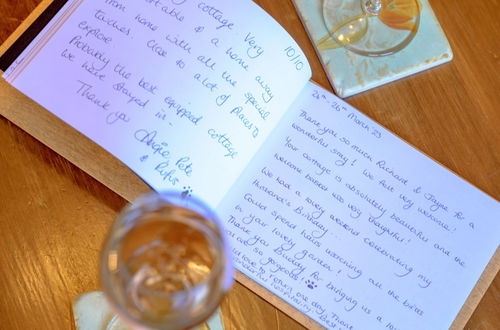 cottage. Very
10/10
table & a home away
from home with all the special
touches. Close to a lot of places to
explore
Probably the best equipped cottage
we have stayed in -
Thank you
Pete
& Rufus
24th - 26th March 23
Thank you so much Richard & Jayne for a
wonderful stay! We felt very welcome!
Your cottage is absolutely beautiful and the
welcome basket was very thoughtful!
We had a lovely weekend celebrating my
Husband's Birthday.
Could spend hours watching all the birds
in your lovely garden!
Thank you Buddy for bringing us a
you are so gorgeous!
love to return one day, Thank
hospitality! Best